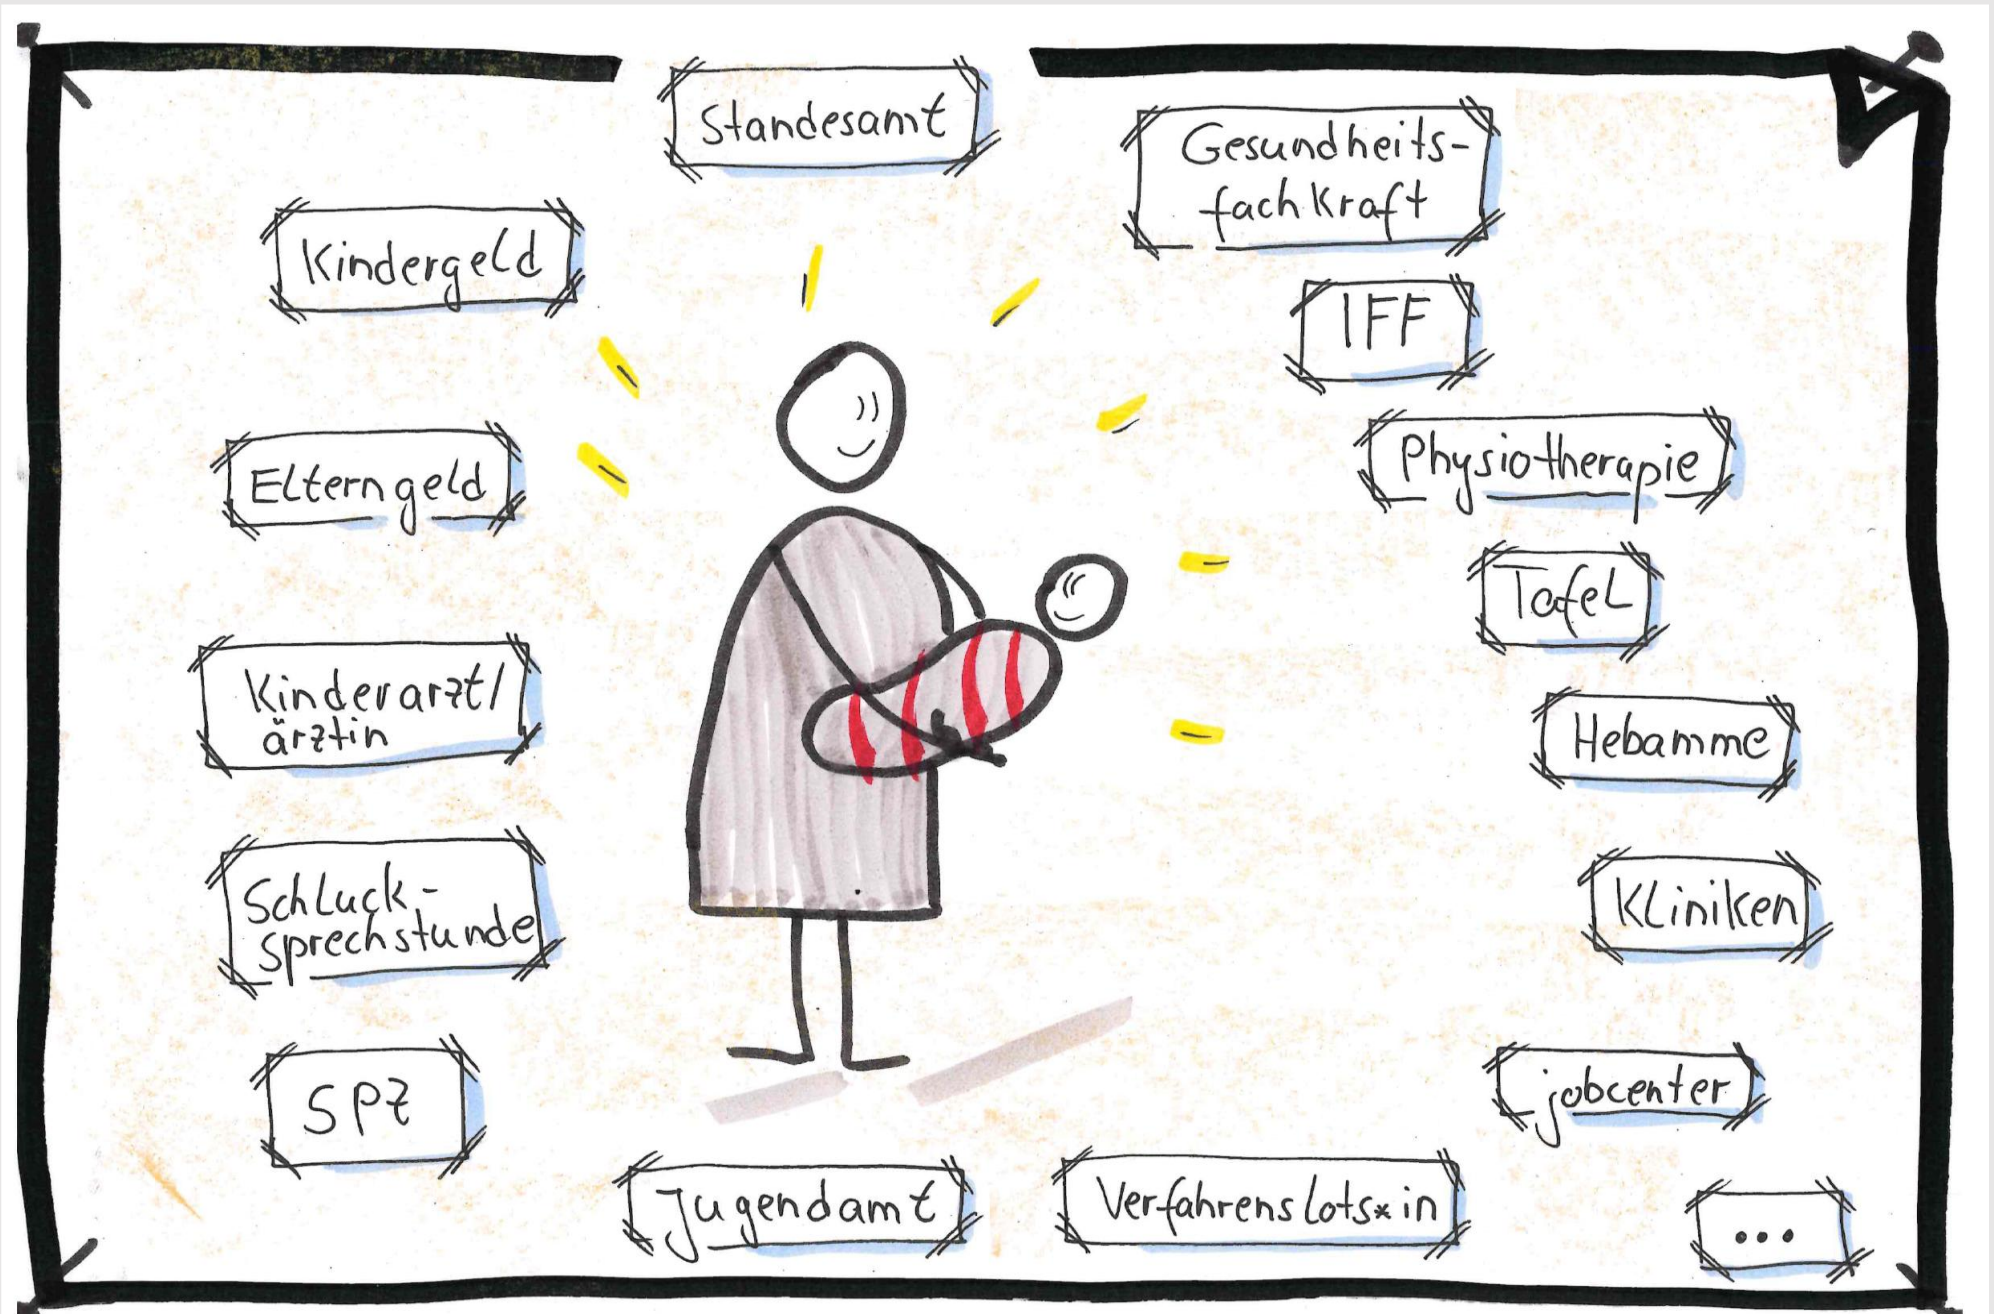 Standesamt
Gesundheits-
fachkraft
Kindergeld
IFF
Elterngeld
Physiotherapie
Tafel
Kinderarzt/
ärztin
Hebamme
Schluck-
sprechstunde
Kliniken
SPZ
jobcenter
Jugendamt
Verfahrenslots*in
...